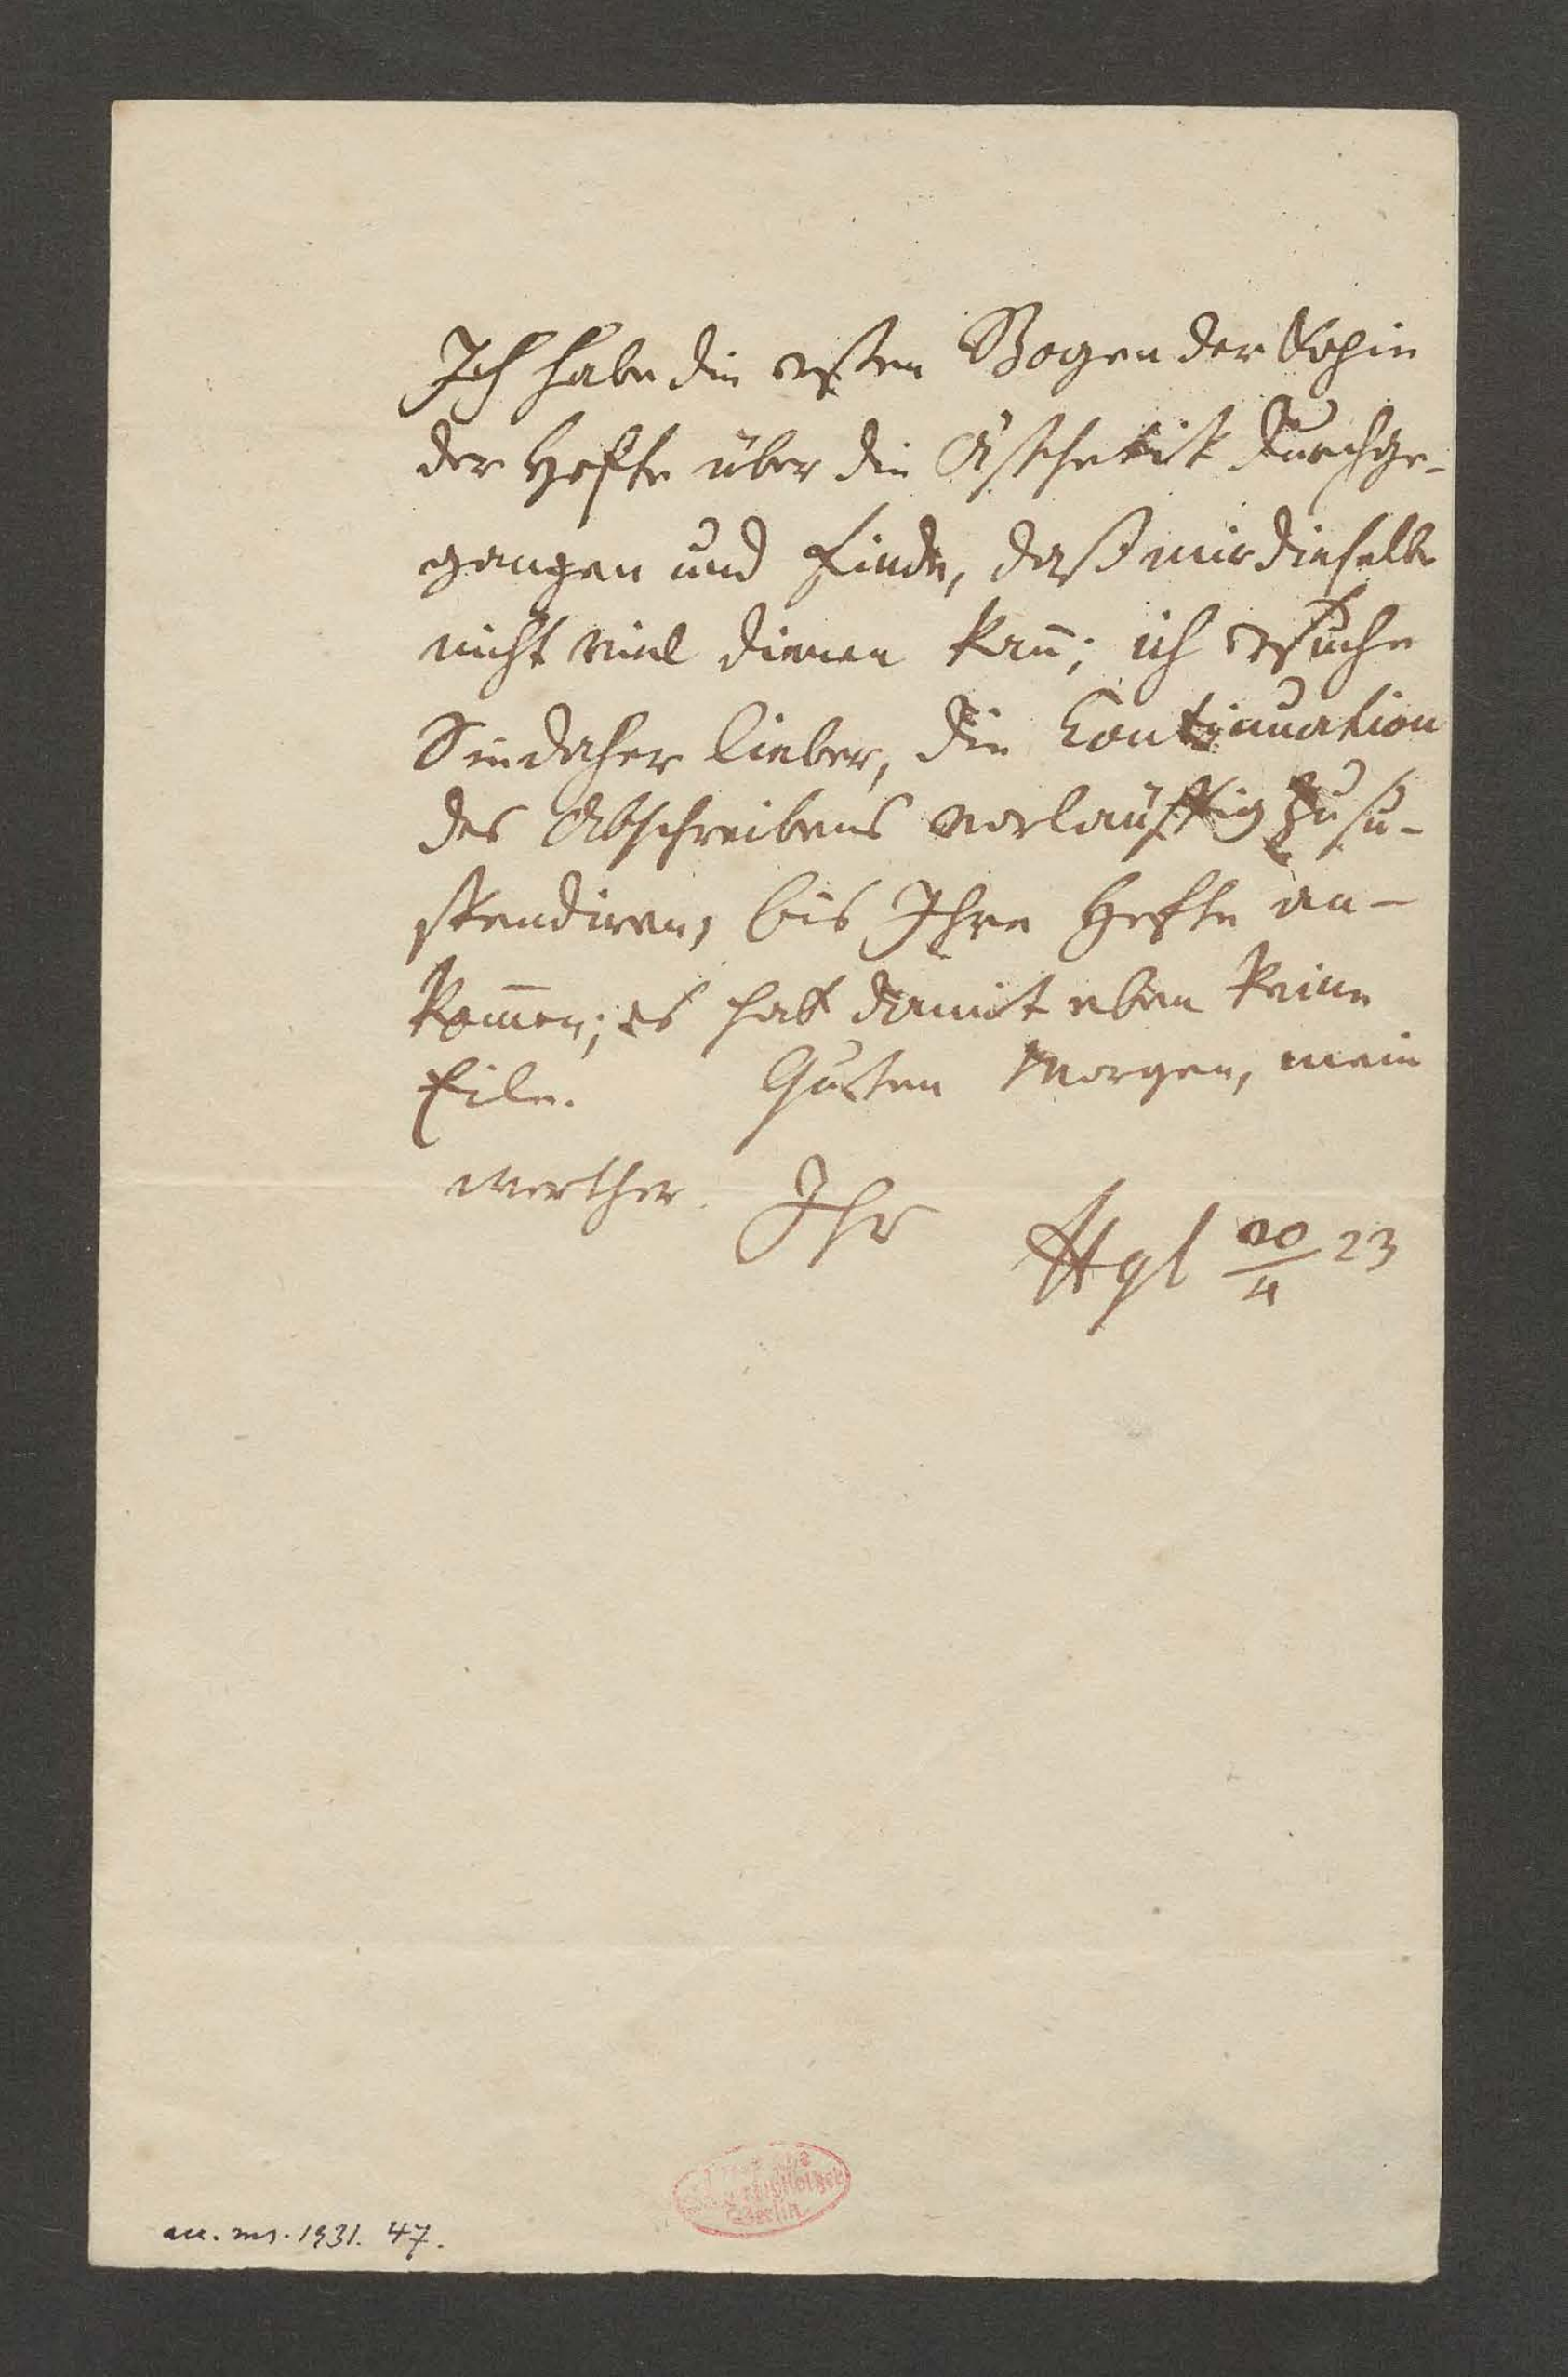 Ich habe die ersten Bogen der Kopie
der Hefte über die Ästhetik durchge-
gangen und finde, daß mir dieselbe
nicht viel dienen kan̄; ich ersuche
Sie daher lieber, die Continuation
des Abschreibens vorläuffig zu su-
spendiren, bis Ihre Hefte an-
kom̄en; es hat damit eben keine
Eile. Guten Morgen, mein
werther. Ihr
Hgl 20/4 23
Berlin
acc. ms. 1931. 47.